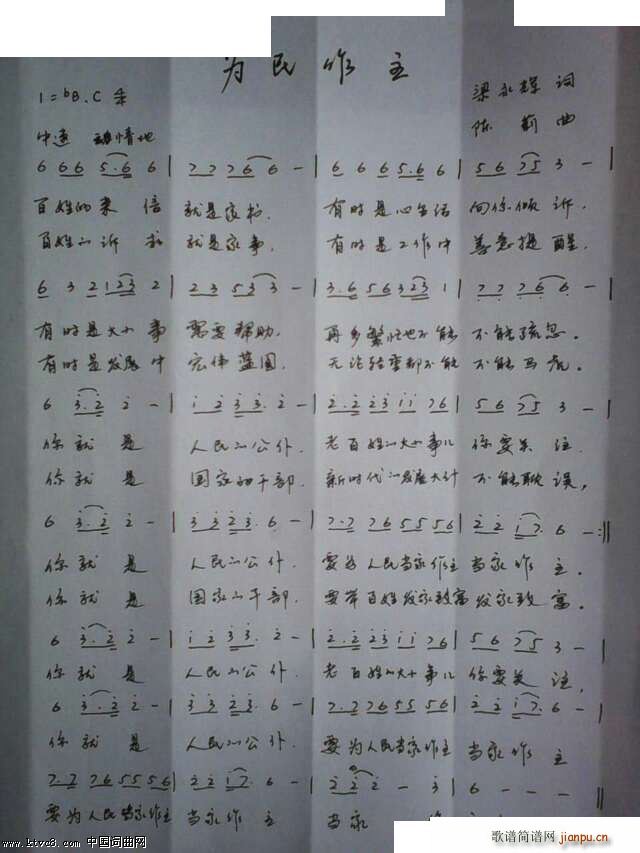 为民作主
1=ᵇB、C 梁永辉 词
中速 动情地 陈莉 曲
6 6 6 5.6 6 | 7 7 7 6 6 - | 6 6 6 5.6 6 | 5 6 7 5 3 - |
百姓的来信 就是家书. 有时是心里话 向你倾诉.
百姓的诉求 就是家事. 有时是工作中 善意提醒.
6 3 2 1 2 3 2 | 2 3 5 3 3 - | 3.6 5 6 3 2 3 1 | 7 7 7 6 6 - |
有时是大小事 需要帮助. 再多繁忙也不能 不能疏忽.
有时是发展中 宏伟蓝图. 无论轻重都不能 不能马虎.
6 3.2 2 - | 1 2 3 3.2 - | 2.2 2 3 1 1 7 6 | 5 6 7 5 3 - |
你就是 人民的公仆. 老百姓的大小事儿 你要关注.
你就是 国家的干部. 新时代的发展大计 不能耽误,
6 3.2 2 - | 3 3 2 3.6 - | 7.7 7 6 5 5 5 6 | 2 2 1 7. 6 - :||
你就是 人民的公仆. 要为人民当家作主 当家作主.
你就是 国家的干部. 要带百姓发家致富 发家致富.
6 3.2 2 - | 1 2 3 3.2 - | 2.2 2 3 1 1 7 6 | 5 6 7 5 3 - |
你就是 人民的公仆. 老百姓的大小事儿 你要关注,
6 3.2 2 - | 3 3 2 3.6 - | 7.7 7 6 5 5 5 6 | 2 2 1 7. 6 - |
你就是 人民的公仆. 要为人民当家作主 当家作主
7.7 7 6 5 5 5 6 | 2 2 1 7. 6 - | 2 2 2 - 3 | 6 - - - ||
要为人民当家作主 当家作主 当家作
www.ktvc8.com 中国词曲网
歌谱简谱网
jianpu.cn